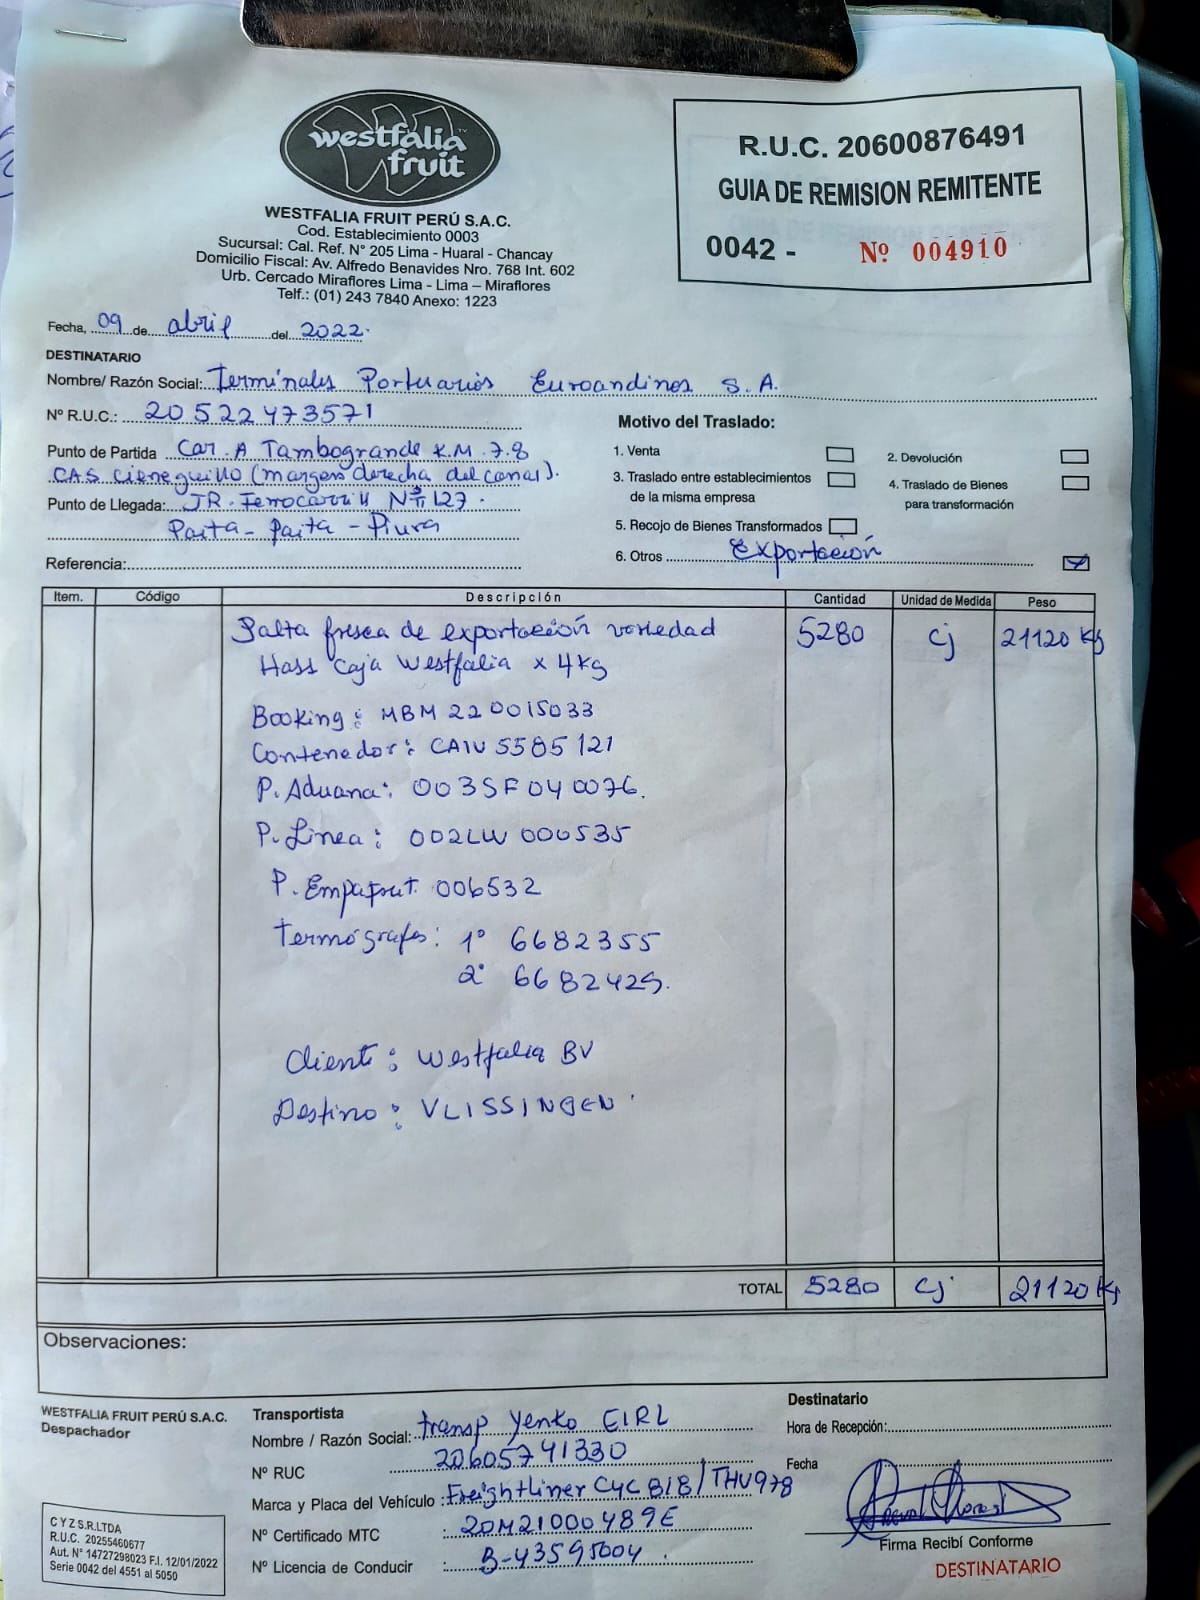 westfalia
fruit
WESTFALIA FRUIT PERÚ S.A.C.
Cod. Establecimiento 0003
Sucursal: Cal. Ref. N° 205 Lima - Huaral - Chancay
Domicilio Fiscal: Av. Alfredo Benavides Nro. 768 Int. 602
Urb. Cercado Miraflores Lima - Lima – Miraflores
Telf.: (01) 243 7840 Anexo: 1223
R.U.C. 20600876491
GUIA DE REMISION REMITENTE
0042 - Nº 004910
Fecha, 09 de abril del 2022.
DESTINATARIO
Nombre/ Razón Social: Terminales Portuarios Euroandinos S.A.
Nº R.U.C.: 20522473571
Punto de Partida Car. A Tambogrande K.M. 7.8
CAS Cieneguillo (margen derecha del canal).
Punto de Llegada: JR. Ferrocarril Nº 127.
Paita - Paita - Piura
Referencia:
Motivo del Traslado:
1. Venta
2. Devolución
3. Traslado entre establecimientos
de la misma empresa
4. Traslado de Bienes
para transformación
5. Recojo de Bienes Transformados
6. Otros Exportación
Item. Código Descripción Cantidad Unidad de Medida Peso
Palta fresca de exportación variedad 5280 Cj 21120 Kg
Hass Caja Westfalia x 4Kg
Booking: MBM220015033
Contenedor: CAIU 5585121
P. Aduana: 003SF040076.
P. Linea: 002LW 000535
P. Empafrut. 006532
Termógrafos: 1º 6682355
2º 6682429.
Cliente: Westfalia BV
Destino: VLISSINGEN
TOTAL 5280 Cj 21120 Kg
Observaciones:
WESTFALIA FRUIT PERÚ S.A.C.
Despachador
Transportista
Nombre / Razón Social: Transp Yenko EIRL
Nº RUC 20605741330
Marca y Placa del Vehículo: Freightliner CYC 818/THV978
Nº Certificado MTC : 20M21000489E
Nº Licencia de Conducir : B-43595004.
Destinatario
Hora de Recepción:
Fecha
Firma Recibí Conforme
DESTINATARIO
C Y Z S.R.LTDA
R.U.C. 20255460677
Aut. N° 14727298023 F.I. 12/01/2022
Serie 0042 del 4551 al 5050